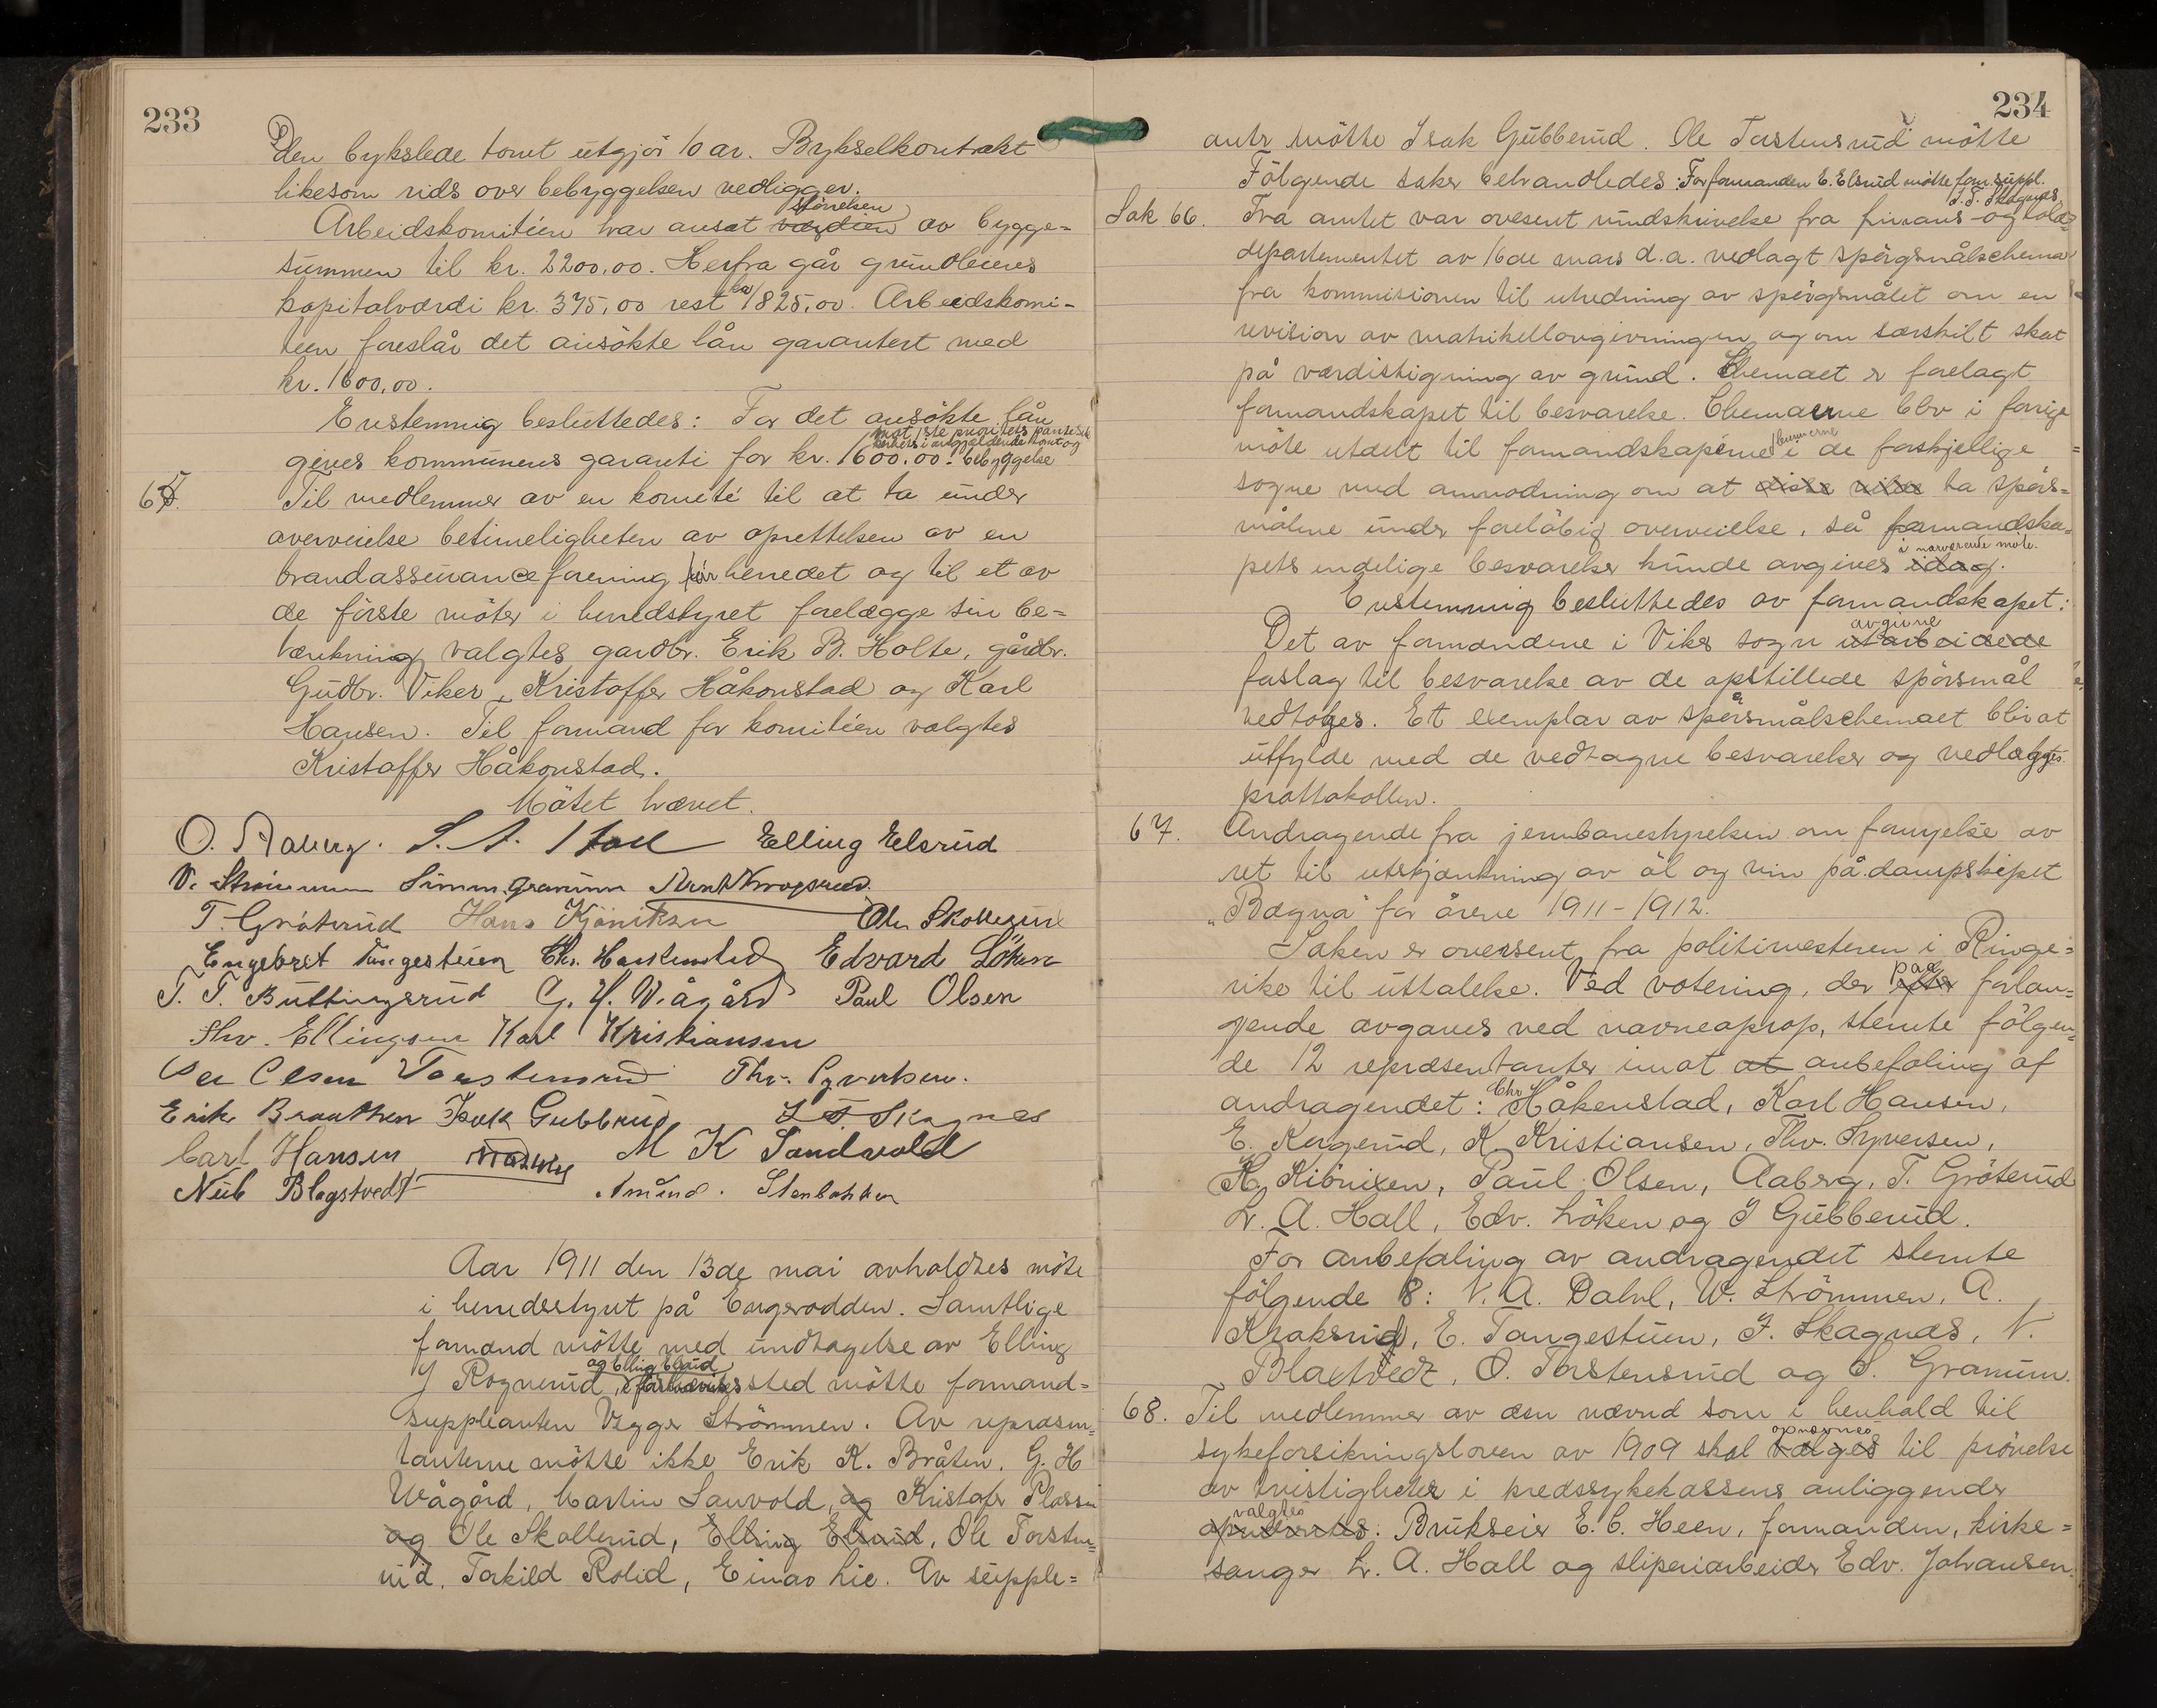 233
Den bykslede tomt utgjör 10 ar. Bykselkontrakt
likesom rids over bebyggelsen vedligger.
störrelsen
Arbeidskomitéen har ansat værdien av bygge=
summen til kr. 2200,00. Herfra går grundleiens
kapitalværdi kr. 375,00 rest kr 1825,00. Arbeidskomi-
teen foreslår det ansökte lån garantert med
kr. 1600,00.
Enstemmig besluttedes: For det ansökte lån
mot 1ste prioritets pantesik
kerhet i angjældende tomt og
gives kommunens garanti for kr. 1600.00. bebyggelse
65. Til medlemmer av en komité til at ta under
overveielse betimeligheten av oprettelsen av en
brandassuranceforening for herredet og til et av
de förste möter i herredstyret forelægge sin be=
tænkning valgtes gardbr. Erik B. Holte, gårdbr.
Gudbr. Viker, Kristoffer Håkonstad og Karl
Hansen. Til formand for komitéen valgtes
Kristoffer Håkonstad.
Mötet hævet.
O. Aaberg. L. A. Hall Elling Elsrud
V. Strömmen Simm. Granum
T. Gröterud Hans Kjöniksen Ole Skollerud
Engebret Tangestuen Chr. Edvard Löken
T. T. Buttingsrud G. H. Wågård Paul Olsen
Thv. Ellingsen Karl Kristiansen
Ole Olsen Torstensrud Thv. Syvertsen.
Erik Braathen Isak Gubberud I. T. Skagnæs
Carl Hansen M K Sandvold
Nub Blagstvedt Amund. Stenbakken
Aar 1911 den 13de mai avholdtes möte
i herredsstyret på Engerodden. Samtlige
formænd mötte med undtagelse av Elling
og Elling Elsrud
J Rognerud, i förstnævntes sted mötte formand=
suppleanten Vegger Strömmen. Av repræsen=
tanterne mötte ikke Erik K. Bråten. G. H
Wågård, Martin Sanvold, og Kristofer Plassen
og Ole Skollerud, Elling Elsrud, Ole Torsten=
rud. Torkild Rolid, Einar Lie. Av supple=
234
antr mötte Isak Gubberud. Ole Torstensrud mötte
Fölgende saker behandledes: For formanden E. Elsrud mötte form. suppl.
I. T. Skagnæs
Sak 66. Fra amtet var oversent rundskrivelse fra finans- og told=
departementet av 16de mars d.a. vedlagt spörgsmålschema
fra kommisionen til utredning av spörgsmålet om en
revision av matrikellovgivningen og om særskilt skat
på værdistigning av grund. Chemaet er forelagt
formandskapet til besvarelse. Chemaerne blev i forrige
möte utdelt til formandskaperne i de forskjellige
sogne med anmodning om at disse vilde ta spörs=
målene under foreløbig overveielse, så formandska=
i nærværende möte.
pets endelige besvarelse kunde avgives idag.
Enstemmig besluttedes av formandskapet:
avgivne
Det av formændene i Viker sogn utarbeidede
forslag til besvarelse av de opstillede spörsmål
vedtokes. Et exemplar av spörsmålschemaet blir at
utfylde med de vedtagne besvarelser og vedlægges
prottokollen.
67. Andragende fra jernbanestyrelsen om fornyelse av
ret til utskjænkning av öl og vin på dampskipet
„Bægna" for årene 1911-1912.
Saken er oversent fra politimesteren i Ringe=
paa
rike til uttalelse. Ved votering, der efter forlan=
gende avgaves ved navneoprop, stemte fölgen=
de 12 repræsentanter imot at anbefaling af
andragendet: Chr Håkenstad, Karl Hansen,
E. Kogerud, K. Kristiansen, Thv. Syversen,
H. Kiönixen, Paul Olsen, Aaberg, T. Gröterud
L. A. Hall, Edv. Löken og I Gubberud.
For anbefaling av andragendet stemte
fölgende 8: N. A. Dahl, W. Strömmen, A.
Kroksrud, E. Tangestuen, I. Skagnæs, N.
Blaktvedt, O. Torstensrud og S. Granum.
68. Til medlemmer av den nævnd som i henhold til
opnævnes
sykeforsikringsloven av 1909 skal vælges til prövelse
av tvistigheter i kredssykekassens anliggender
valgtes
opnævntes: Brukseier E. C. Heen, formanden, kirke=
sanger L. A. Hall og sliperiarbeider Edv. Johansen.